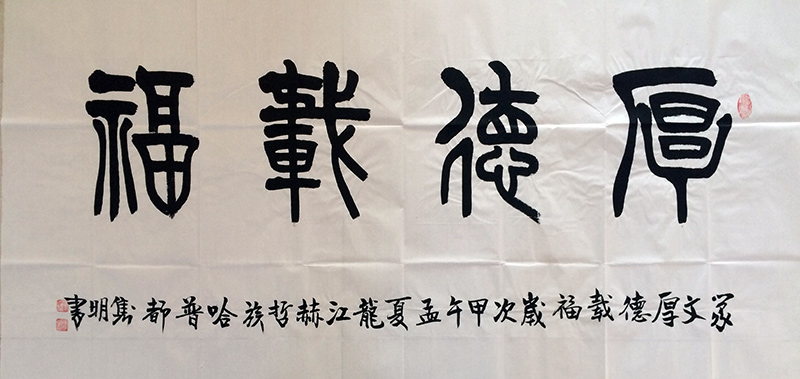 厚德載福
篆文厚德載福歲次甲午孟夏龍江赫哲族哈普都隽明書